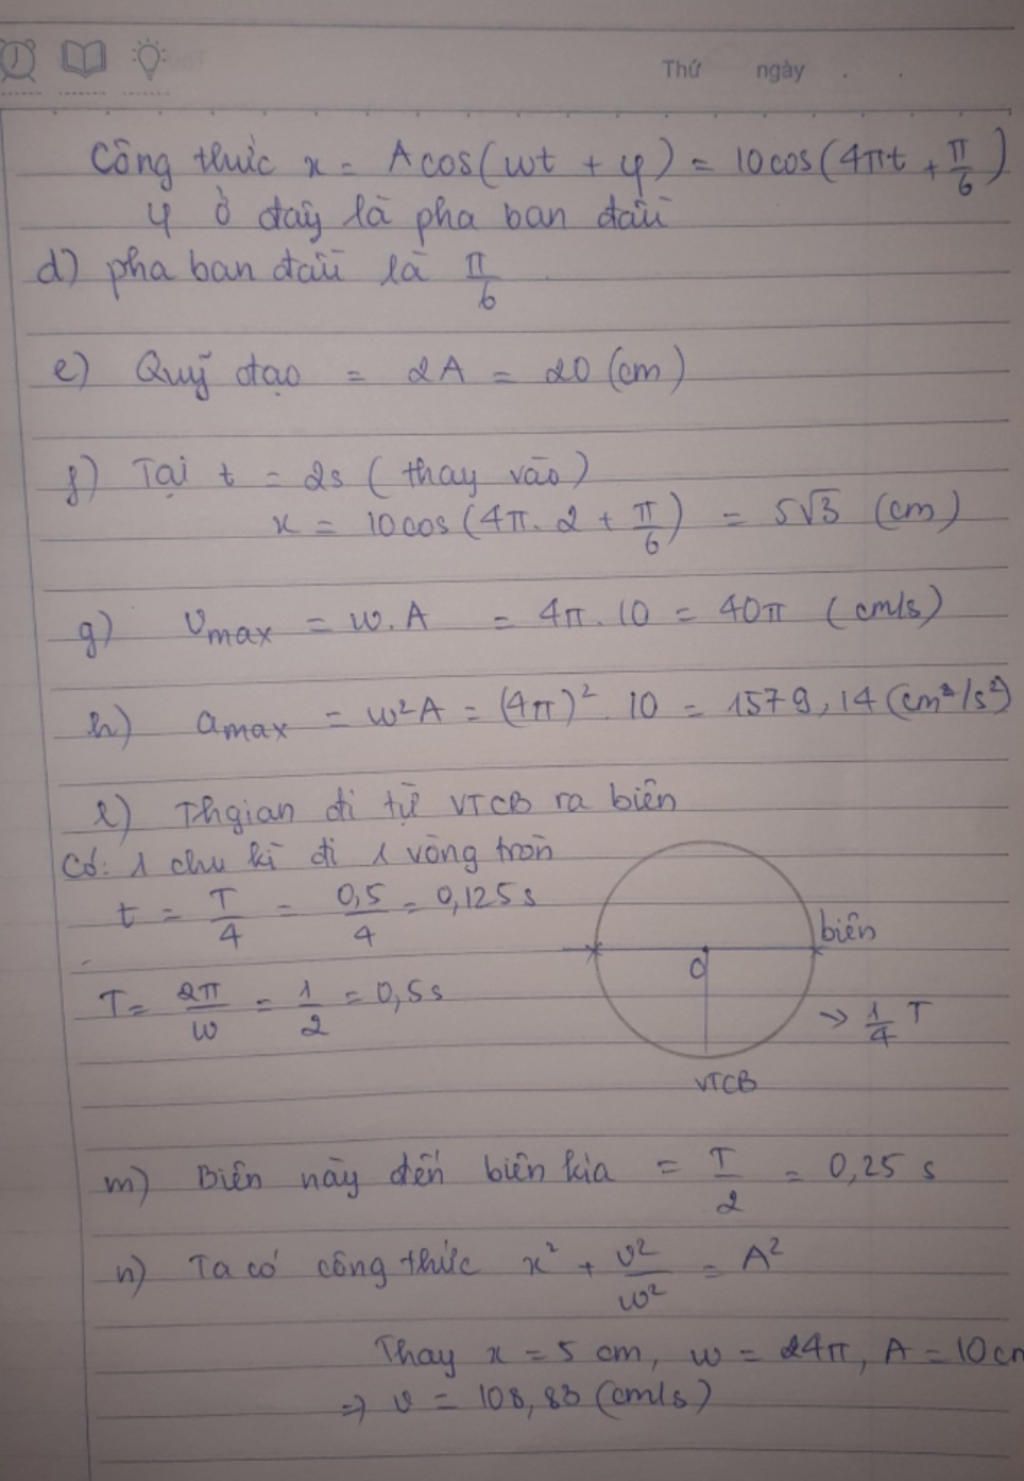 Thứ ngày . .
Công thức x = Acos(ωt + φ) = 10cos(4πt + π/6)
φ ở đây là pha ban đầu
d) pha ban đầu là π/6
e) Quỹ đạo = 2A = 20 (cm)
f) Tại t = 2s (thay vào)
x = 10cos(4π. 2 + π/6) = 5√3 (cm)
g) vmax = ω.A = 4π.10 = 40π (cm/s)
h) amax = ω²A = (4π)².10 = 1579,14 (cm²/s²)
l) Thgian đi từ VTCB ra biên
Có: 1 chu kì đi 1 vòng tròn
t = T/4 = 0,5/4 = 0,125s
biên
O
T = 2π/ω = 1/2 = 0,5s
→ 1/4 T
VTCB
m) Biên này đến biên kia = T/2 = 0,25 s
n) Ta có công thức x² + v²/ω² = A²
Thay x = 5 cm, ω = 4π, A = 10cm
⇒ v = 108,83 (cm/s)